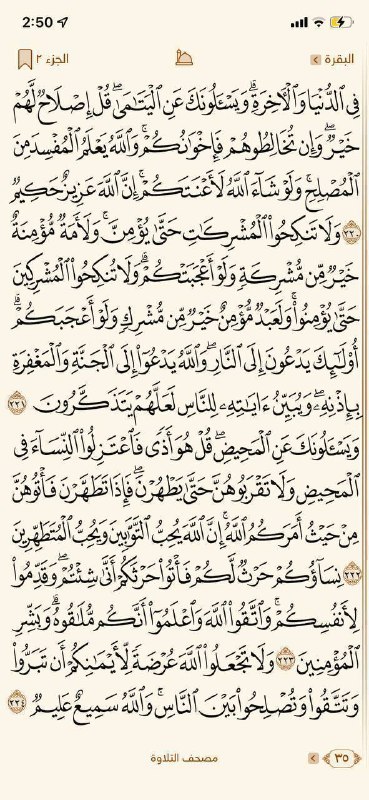 2:50
البقرة
الجزء ٢
فِي ٱلدُّنۡيَا وَٱلۡأٓخِرَةِۗ وَيَسۡـَٔلُونَكَ عَنِ ٱلۡيَتَٰمَىٰۖ قُلۡ إِصۡلَاحٞ لَّهُمۡ
خَيۡرٞۖ وَإِن تُخَالِطُوهُمۡ فَإِخۡوَٰنُكُمۡۚ وَٱللَّهُ يَعۡلَمُ ٱلۡمُفۡسِدَ مِنَ
ٱلۡمُصۡلِحِۚ وَلَوۡ شَآءَ ٱللَّهُ لَأَعۡنَتَكُمۡۚ إِنَّ ٱللَّهَ عَزِيزٌ حَكِيمٞ
٢٢٠ وَلَا تَنكِحُواْ ٱلۡمُشۡرِكَٰتِ حَتَّىٰ يُؤۡمِنَّۚ وَلَأَمَةٞ مُّؤۡمِنَةٌ
خَيۡرٞ مِّن مُّشۡرِكَةٖ وَلَوۡ أَعۡجَبَتۡكُمۡۗ وَلَا تُنكِحُواْ ٱلۡمُشۡرِكِينَ
حَتَّىٰ يُؤۡمِنُواْۚ وَلَعَبۡدٞ مُّؤۡمِنٌ خَيۡرٞ مِّن مُّشۡرِكٖ وَلَوۡ أَعۡجَبَكُمۡۗ
أُوْلَٰٓئِكَ يَدۡعُونَ إِلَى ٱلنَّارِۖ وَٱللَّهُ يَدۡعُوٓاْ إِلَى ٱلۡجَنَّةِ وَٱلۡمَغۡفِرَةِ
بِإِذۡنِهِۦۖ وَيُبَيِّنُ ءَايَٰتِهِۦ لِلنَّاسِ لَعَلَّهُمۡ يَتَذَكَّرُونَ ٢٢١
وَيَسۡـَٔلُونَكَ عَنِ ٱلۡمَحِيضِۖ قُلۡ هُوَ أَذٗى فَٱعۡتَزِلُواْ ٱلنِّسَآءَ فِي
ٱلۡمَحِيضِ وَلَا تَقۡرَبُوهُنَّ حَتَّىٰ يَطۡهُرۡنَۖ فَإِذَا تَطَهَّرۡنَ فَأۡتُوهُنَّ
مِنۡ حَيۡثُ أَمَرَكُمُ ٱللَّهُۚ إِنَّ ٱللَّهَ يُحِبُّ ٱلتَّوَّٰبِينَ وَيُحِبُّ ٱلۡمُتَطَهِّرِينَ
٢٢٢ نِسَآؤُكُمۡ حَرۡثٞ لَّكُمۡ فَأۡتُواْ حَرۡثَكُمۡ أَنَّىٰ شِئۡتُمۡۖ وَقَدِّمُواْ
لِأَنفُسِكُمۡۚ وَٱتَّقُواْ ٱللَّهَ وَٱعۡلَمُوٓاْ أَنَّكُم مُّلَٰقُوهُۗ وَبَشِّرِ
ٱلۡمُؤۡمِنِينَ ٢٢٣ وَلَا تَجۡعَلُواْ ٱللَّهَ عُرۡضَةٗ لِّأَيۡمَٰنِكُمۡ أَن تَبَرُّواْ
وَتَتَّقُواْ وَتُصۡلِحُواْ بَيۡنَ ٱلنَّاسِۚ وَٱللَّهُ سَمِيعٌ عَلِيمٞ ٢٢٤
٣٥
مصحف التلاوة